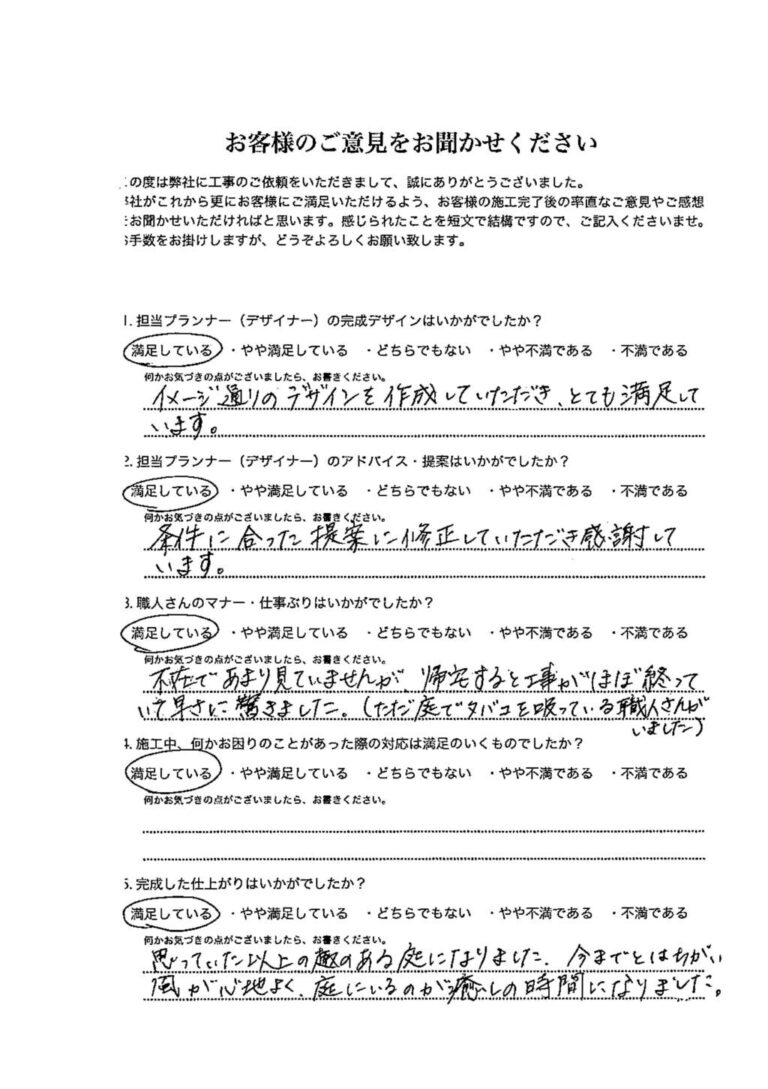 お客様のご意見をお聞かせください
の度は弊社に工事のご依頼をいただきまして、誠にありがとうございました。
社がこれから更にお客様にご満足いただけるよう、お客様の施工完了後の率直なご意見やご感想
お聞かせいただければと思います。感じられたことを短文で結構ですので、ご記入くださいませ。
手数をお掛けしますが、どうぞよろしくお願い致します。
1. 担当プランナー（デザイナー）の完成デザインはいかがでしたか？
満足している ・やや満足している ・どちらでもない ・やや不満である ・不満である
何かお気づきの点がございましたら、お書きください。
イメージ通りのデザインを作成していただき、とても満足して
います。
2. 担当プランナー（デザイナー）のアドバイス・提案はいかがでしたか？
満足している ・やや満足している ・どちらでもない ・やや不満である ・不満である
何かお気づきの点がございましたら、お書きください。
条件に合った提案に修正していただき感謝して
います。
3. 職人さんのマナー・仕事ぶりはいかがでしたか？
満足している ・やや満足している ・どちらでもない ・やや不満である ・不満である
何かお気づきの点がございましたら、お書きください。
不在であまり見ていませんが、帰宅すると工事がほぼ終って
いて早さに驚きました。(ただ庭でタバコを吸っている職人さんが
いました)
4. 施工中、何かお困りのことがあった際の対応は満足のいくものでしたか？
満足している ・やや満足している ・どちらでもない ・やや不満である ・不満である
何かお気づきの点がございましたら、お書きください。
5. 完成した仕上がりはいかがでしたか？
満足している ・やや満足している ・どちらでもない ・やや不満である ・不満である
何かお気づきの点がございましたら、お書きください。
思っていた以上の趣のある庭になりました。今までとはちがい
風が心地よく、庭にいるのが癒しの時間になりました。